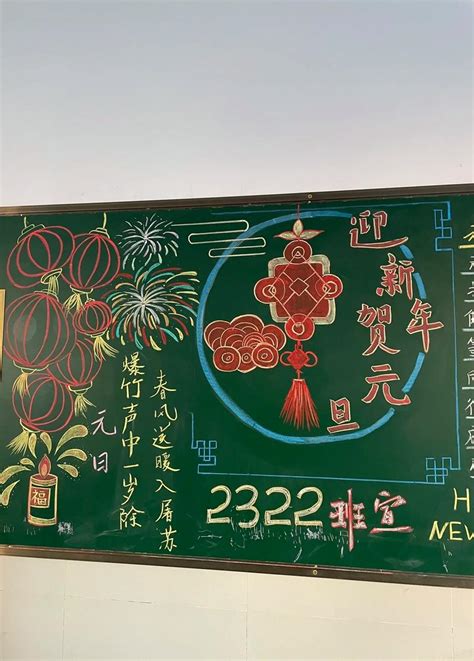 福
元日
爆竹声中一岁除
春风送暖入屠苏
迎新年
贺元旦
2322班宣
H
NEW